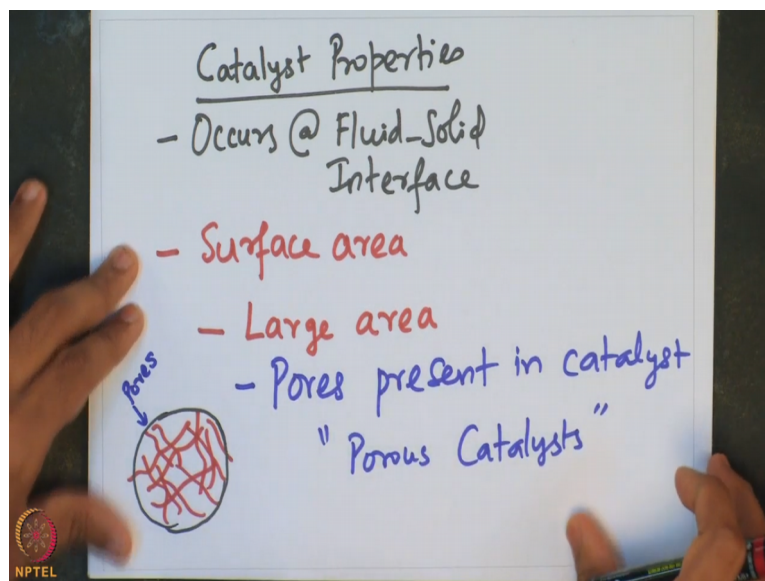 Catalyst Properties
- Occurs @ Fluid-Solid
Interface
- Surface area
- Large area
- Pores present in catalyst
" Porous Catalysts "
Pores
NPTEL